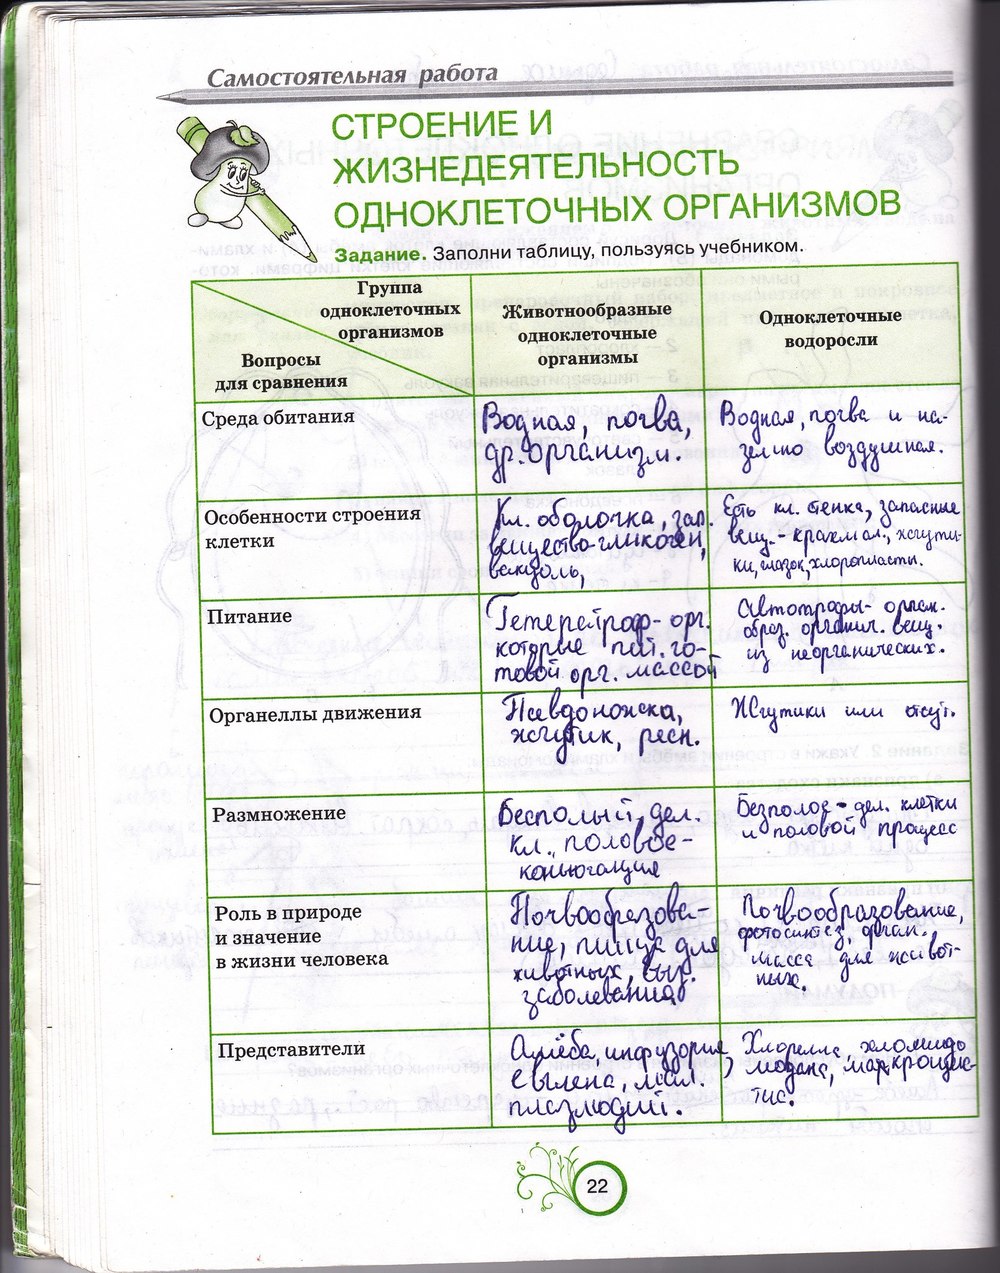 Самостоятельная работа
СТРОЕНИЕ И
ЖИЗНЕДЕЯТЕЛЬНОСТЬ
ОДНОКЛЕТОЧНЫХ ОРГАНИЗМОВ
Задание. Заполни таблицу, пользуясь учебником.
Группа
одноклеточных
организмов
Вопросы
для сравнения
Животнообразные
одноклеточные
организмы
Одноклеточные
водоросли
Среда обитания
Водная, почва,
др. организм.
Водная, почва и на-
земно воздушная.
Особенности строения
клетки
Кл. оболочка, зап.
вещество-гликоген,
вакуоль,
Есть кл. стенка, запасные
вещ. - крахмал., жгути-
ки, глазок, хлоропласты.
Питание
Гетеротроф- орг.
которые пит. го-
товой орг. массой
Автотрофы- орган.
образ. органич. вещ.
из неорганических.
Органеллы движения
Псевдоножка,
жгутик, ресн.
Жгутики или отсут.
Размножение
Бесполый, дел.
кл., половое-
конюгация
Безполое - дел. клетки
и половой процесс
Роль в природе
и значение
в жизни человека
Почвообразова-
ние, пища для
животных, выз.
заболевания
Почвообразование,
фотосинтез, орган.
масса для живот-
ных.
Представители
Амёба, инфузория,
евглена, мал.
плазмодий.
Хлорелла, хломидо
модана,
тис.
22